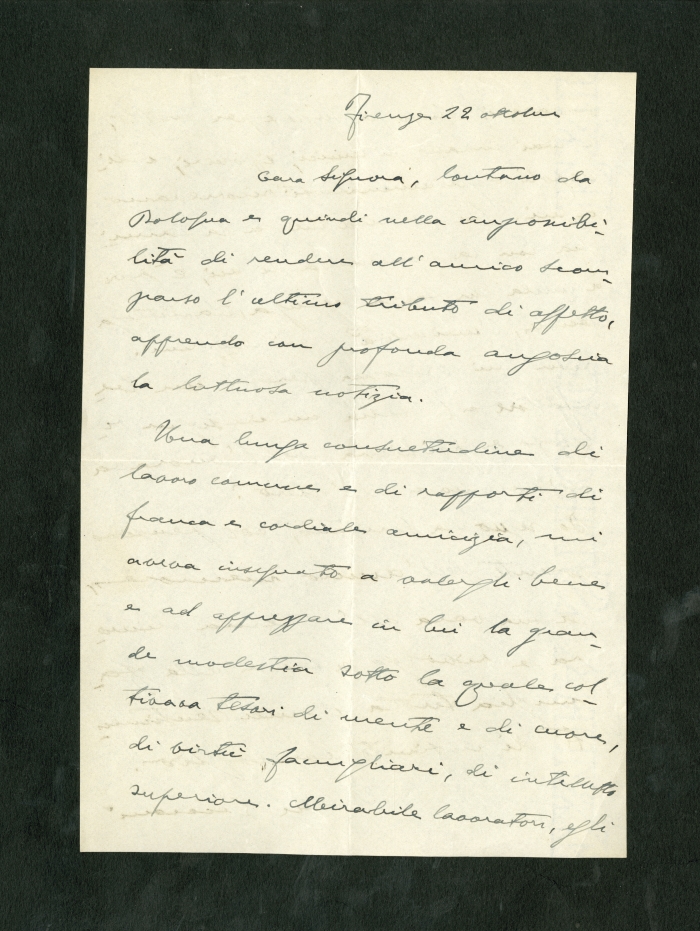 Firenze 22 ottobre
Cara Signora, lontano da
Bologna e quindi nella impossibi-
lità di rendere all'amico scom-
parso l'ultimo tributo di affetto,
apprendo con profonda angoscia
la luttuosa notizia.
Una lunga consuetudine di
lavoro comune e di rapporti di
franca e cordiale amicizia, mi
aveva insegnato a volergli bene
e ad apprezzare in lui la gran-
de modestia sotto la quale col-
tivava tesori di mente e di cuore,
di virtù famigliari, di intelletto
superiore. Mirabile lavoratore, egli